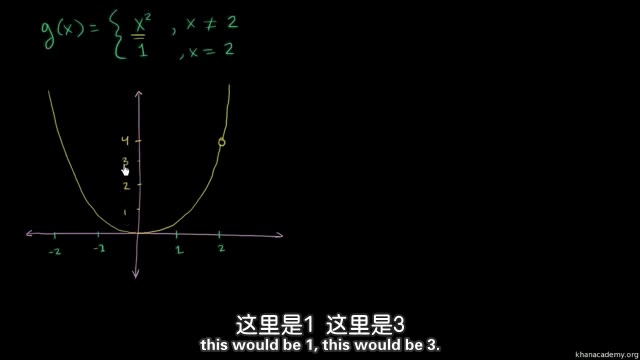 g(x) = { x² , x ≠ 2
1 , x = 2
4
3
2
1
-2 -1 1 2
这里是1 这里是3
this would be 1, this would be 3.
khanacademy.org